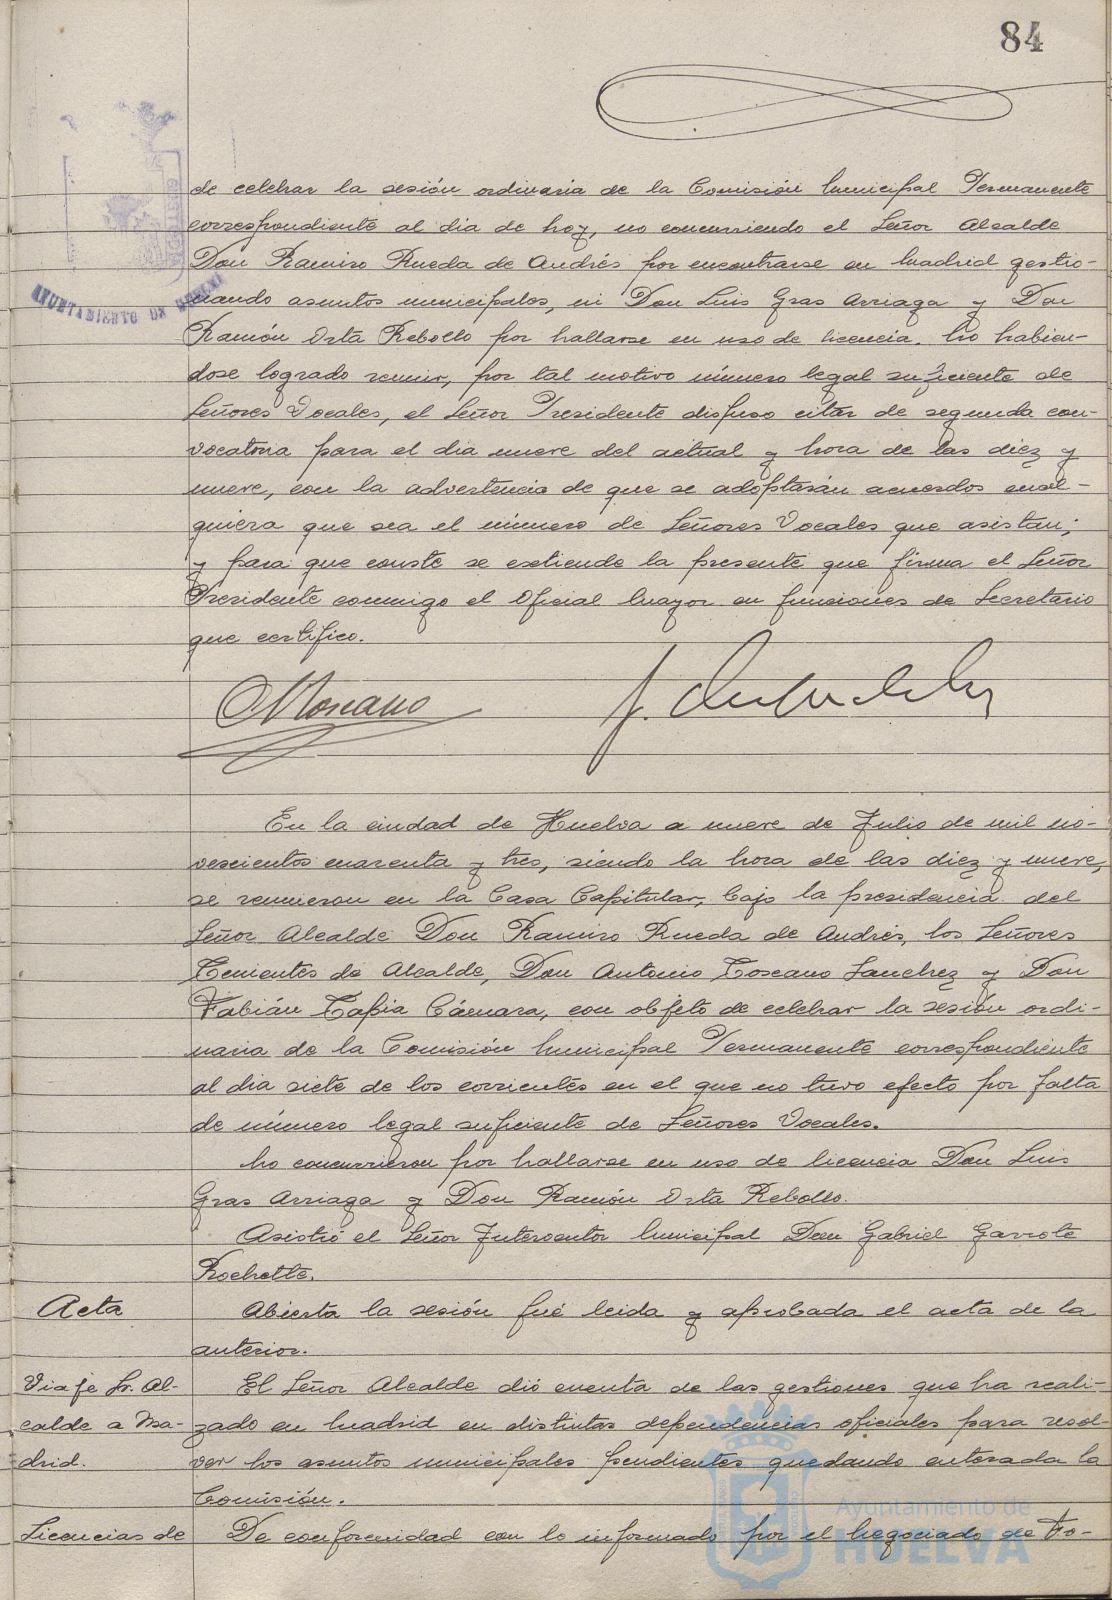 84
AYUNTAMIENTO DE HUELVA
de celebrar la sesión ordinaria de la Comisión Municipal Permanente
correspondiente al dia de hoy, no concurriendo el Señor Alcalde
Don Ramiro Rueda de Andrés por encontrarse en Madrid gestio-
nando asuntos municipales, ni Don Luis Gras Arriaga y Don
Ramón Orta Rebollo por hallarse en uso de licencia. No habien-
dose logrado reunir, por tal motivo número legal suficiente de
Señores Vocales, el Señor Presidente dispuso citar de segunda con-
vocatoria para el dia nueve del actual y hora de las diez y
nueve, con la advertencia de que se adoptarán acuerdos cual-
quiera que sea el número de Señores Vocales que asistan;
y para que conste se extiende la presente que firma el Señor
Presidente conmigo el Oficial Mayor en funciones de Secretario
que certifico.
Toscano
En la ciudad de Huelva a nueve de Julio de mil no-
vescientos cuarenta y tres, siendo la hora de las diez y nueve,
se reunieron en la Casa Capitular, bajo la presidencia del
Señor Alcalde Don Ramiro Rueda de Andrés, los Señores
Tenientes de Alcalde, Don Antonio Toscano Sanchez y Don
Fabián Tapia Cámara, con objeto de celebrar la sesión ordi-
naria de la Comisión Municipal Permanente correspondiente
al dia siete de los corrientes en el que no tuvo efecto por falta
de número legal suficiente de Señores Vocales.
No concurrieron por hallarse en uso de licencia Don Luis
Gras Arriaga y Don Ramón Orta Rebollo.
Asistió el Señor Interventor Municipal Don Gabriel Garrote
Rochette.
Acta
Abierta la sesión fué leida y aprobada el acta de la
anterior.
Viaje Sr. Al-
calde a Ma-
drid.
El Señor Alcalde dió cuenta de las gestiones que ha reali-
zado en Madrid en distintas dependencias oficiales para resol-
ver los asuntos municipales pendientes quedando enterada la
Comisión.
Licencias de
De conformidad con lo informado por el Negociado de Fo-
Ayuntamiento de
HUELVA